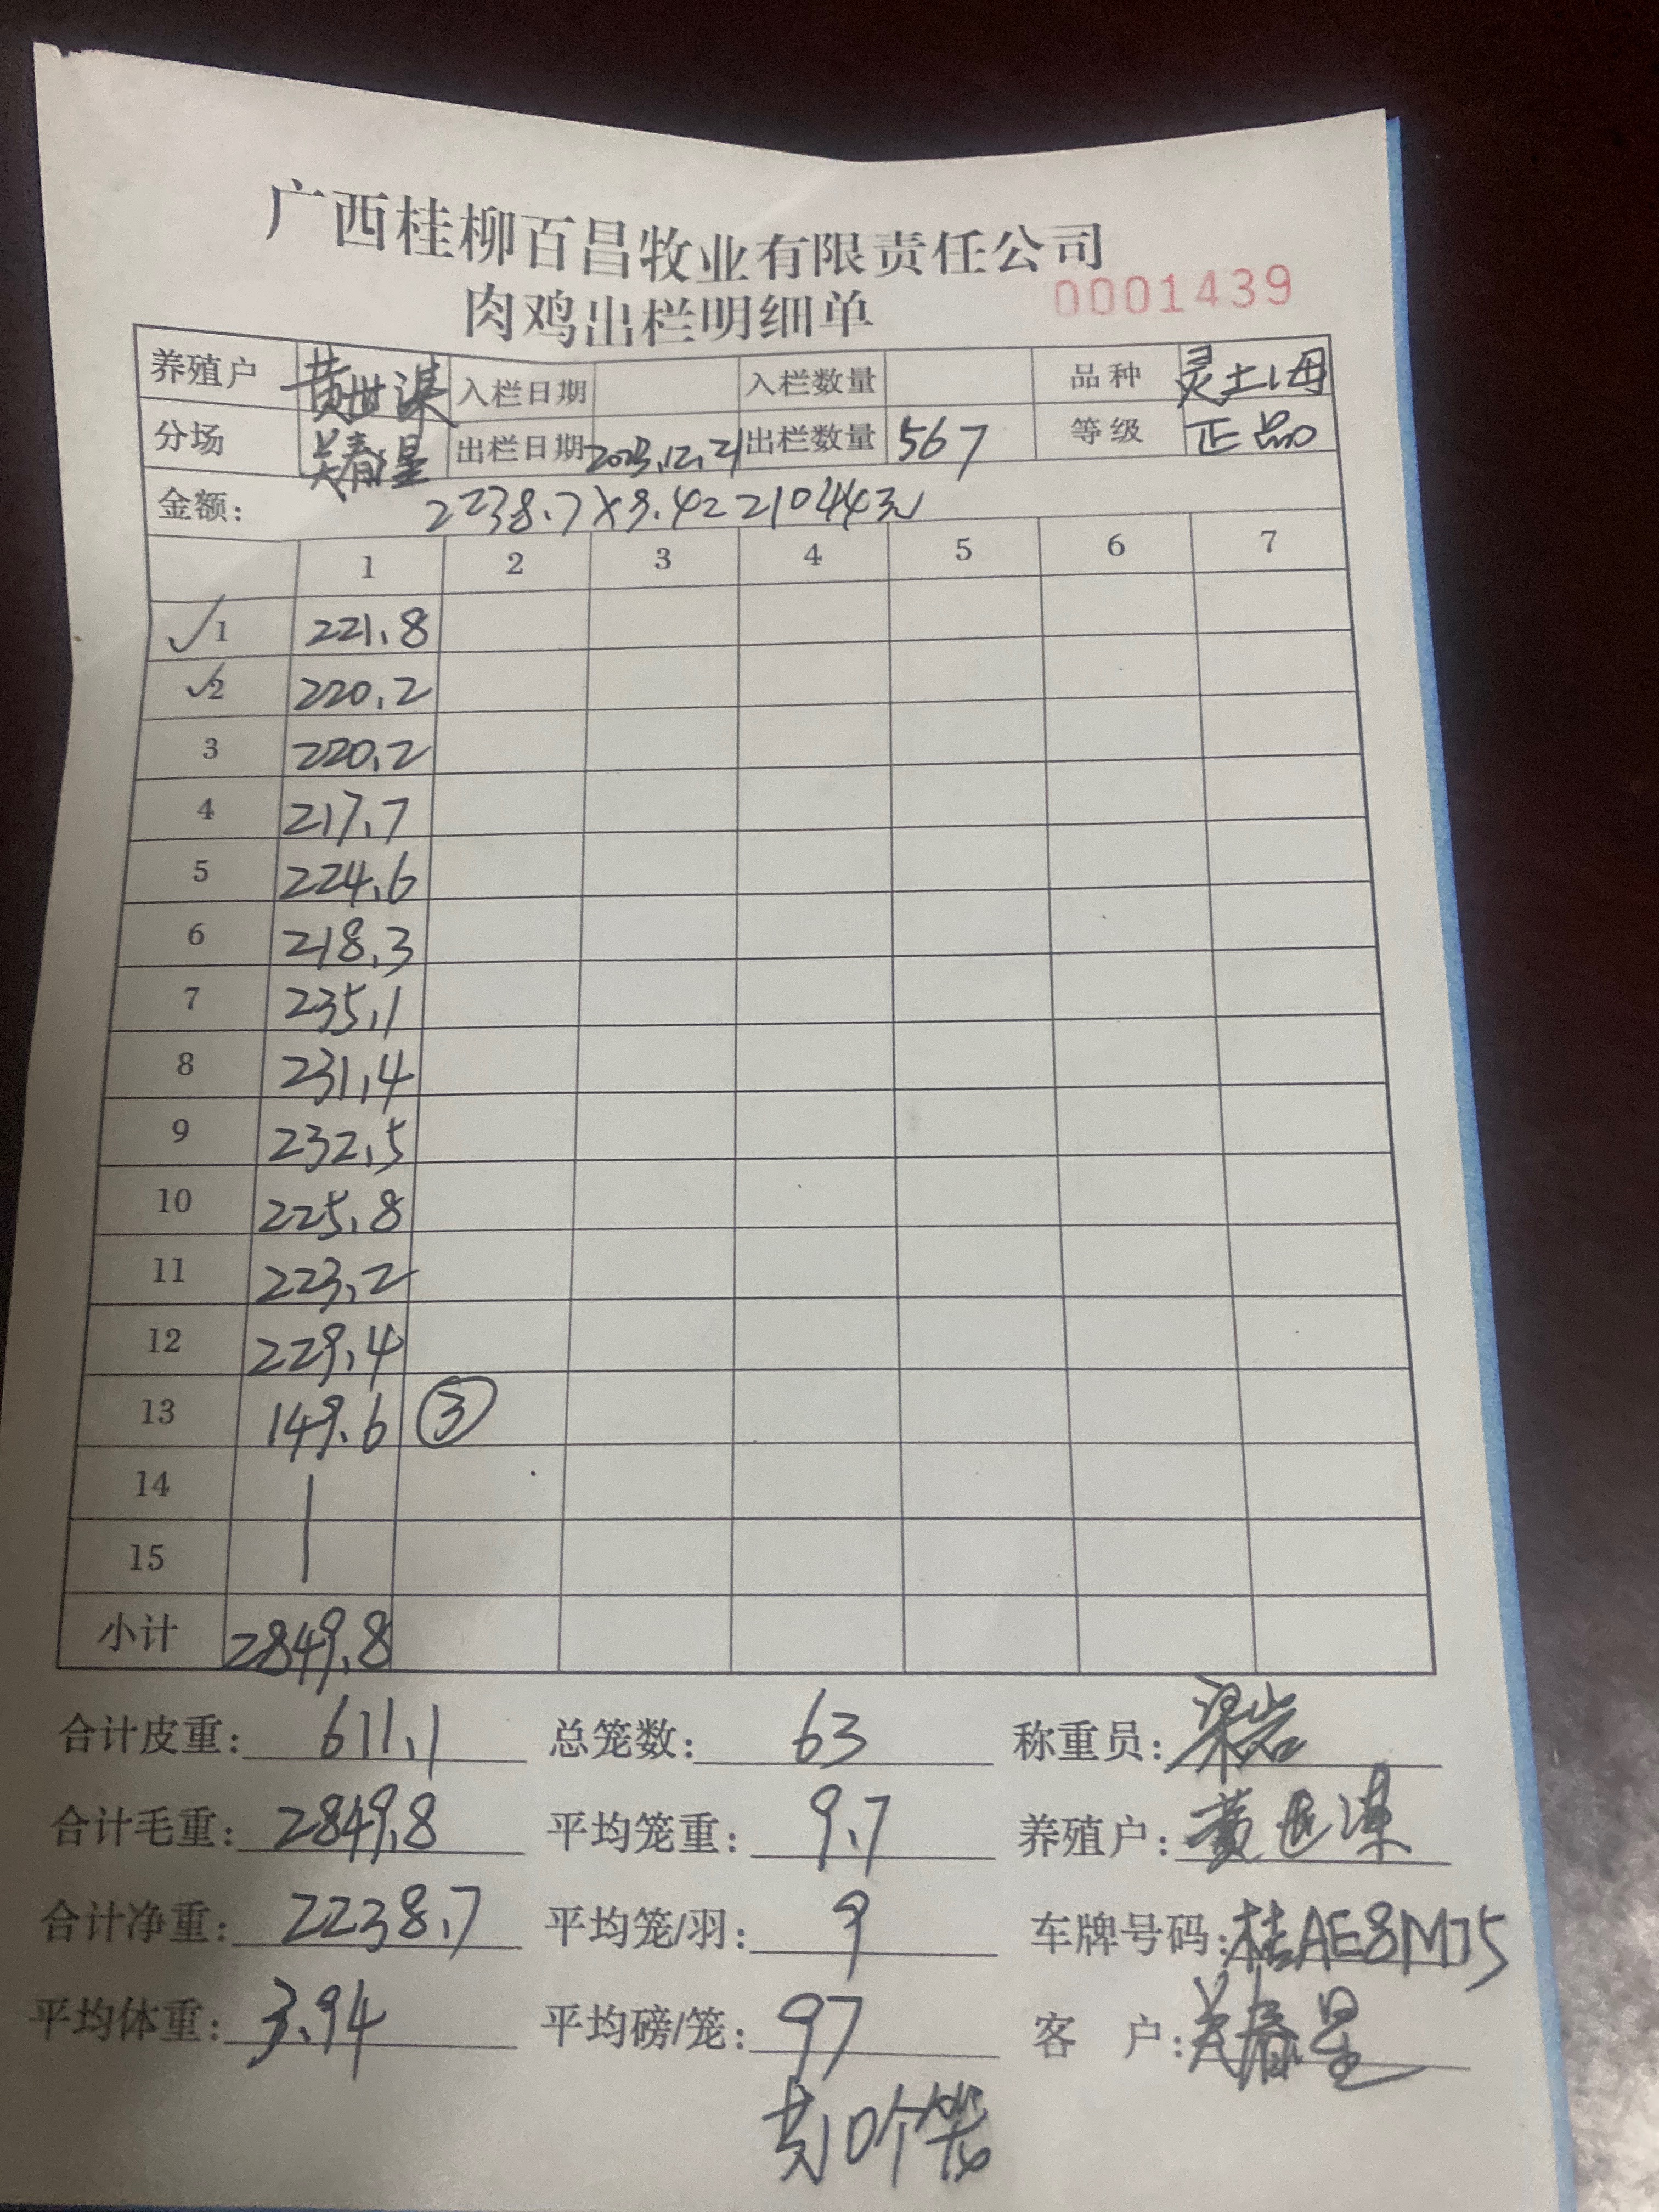 广西桂柳百昌牧业有限责任公司
肉鸡出栏明细单 0001439
养殖户 黄世谋 入栏日期 入栏数量 品种 灵土1母
分场 吴春星 出栏日期 2023.12.21 出栏数量 567 等级 正品
金额: 2238.7×9.4=21044元
1 2 3 4 5 6 7
✓1 221.8
✓2 220.2
3 220.2
4 217.7
5 224.6
6 218.3
7 235.1
8 231.4
9 232.5
10 225.8
11 223.2
12 229.4
13 149.6 ③
14
15
小计 2849.8
合计皮重: 611.1 总笼数: 63 称重员: 梁岩
合计毛重: 2849.8 平均笼重: 9.7 养殖户: 黄世谋
合计净重: 2238.7 平均笼/羽: 9 车牌号码: 桂AE8M75
平均体重: 3.94 平均磅/笼: 97 客 户: 吴春星
黄10个笼